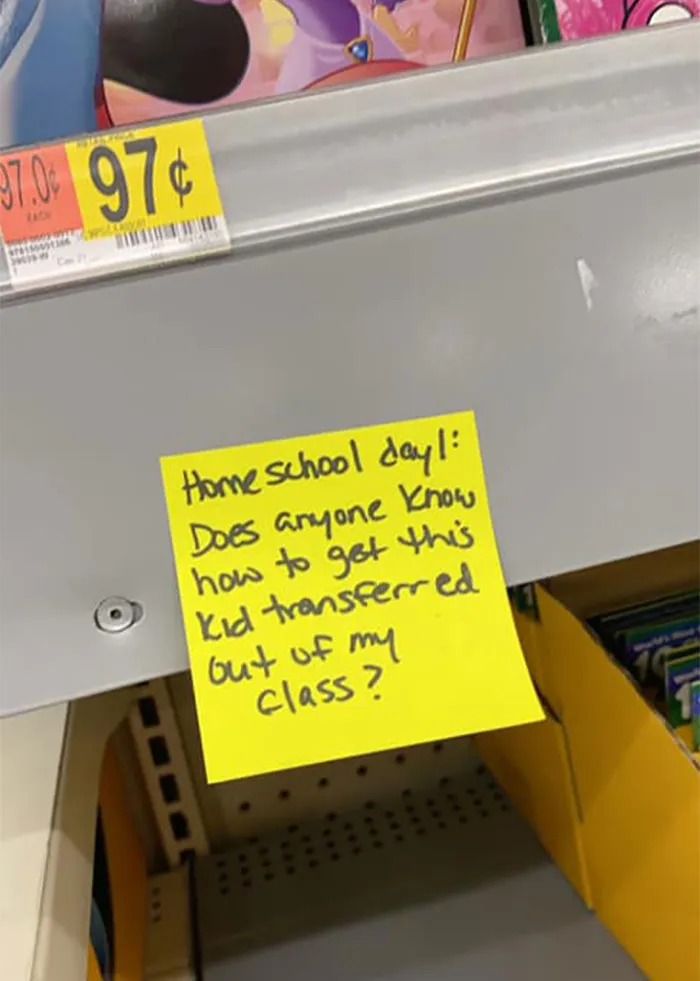 97.0¢
EACH
97¢
Homeschool day 1:
Does anyone know
how to get this
kid transferred
out of my
class?